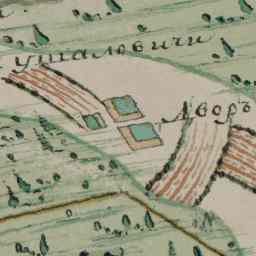 Ушаловичи
Дворъ